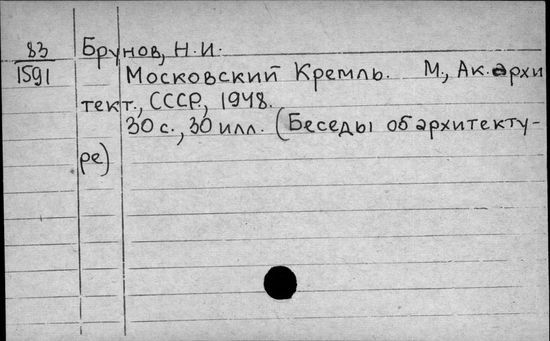 83
1591
Брунов, Н.И.
Московский Кремль. М., Ак. архи
тект., СССР, 1948.
30 с., 30 илл. (Беседы об архитекту-
ре)